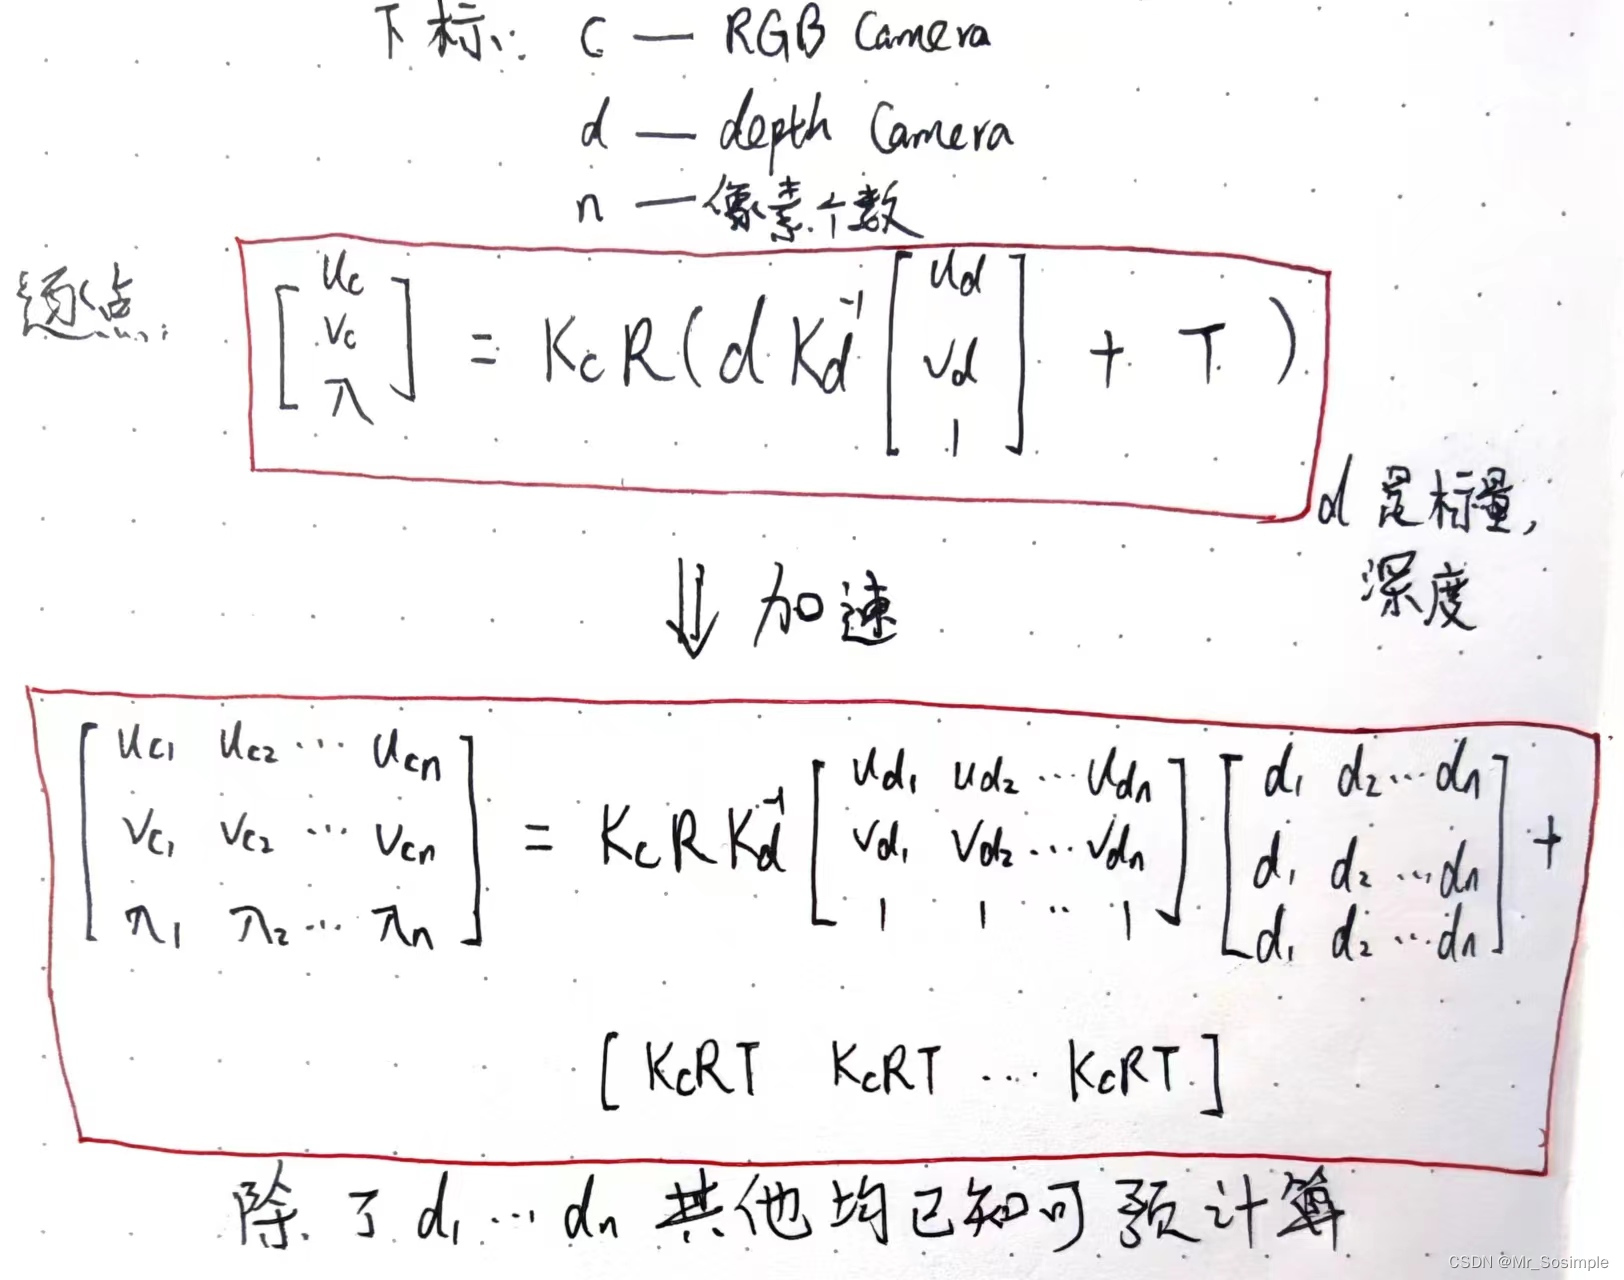 下标: C — RGB Camera
d — depth Camera
n — 像素个数
逐点:
[ uc vc π ] = Kc R ( d Kd⁻¹ [ ud vd 1 ] + T )
d 是标量,
深度
⇓ 加速
[ uc1 uc2 ⋯ ucn
vc1 vc2 ⋯ vcn
π1 π2 ⋯ πn ] = Kc R Kd⁻¹ [ ud1 ud2 ⋯ udn
vd1 vd2 ⋯ vdn
1 1 ⋯ 1 ] [ d1 d2 ⋯ dn
d1 d2 ⋯ dn
d1 d2 ⋯ dn ] +
[ KcRT KcRT ⋯ KcRT ]
除了 d1 ⋯ dn 其他均已知可预计算
CSDN @Mr_Sosimple